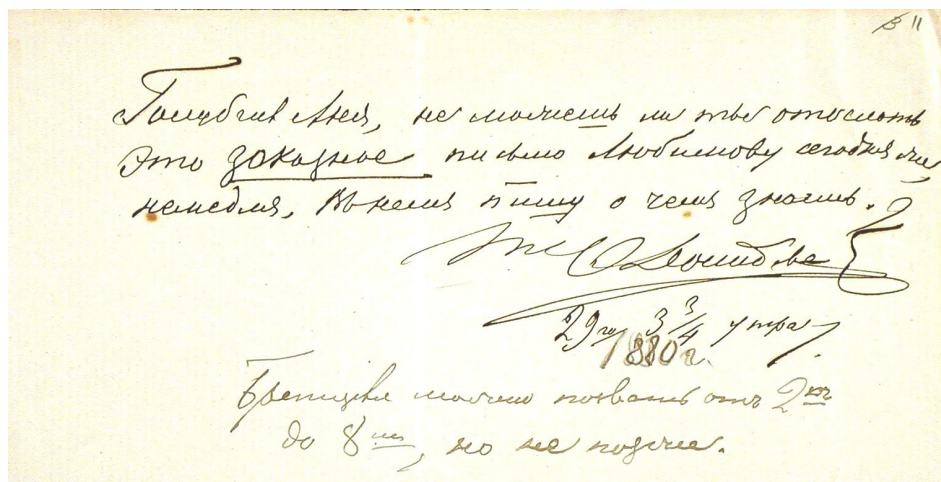 11
Голубчик Аня, не можешь ли ты отослать
это заказное письмо Любимову сегодня же,
немедля. Въ немъ пишу о чемъ знаешь.
Достоевскій
29го 3 3/4 утра.
1880 г.
можно позвать отъ 2хъ
до 8ми, но не позже.